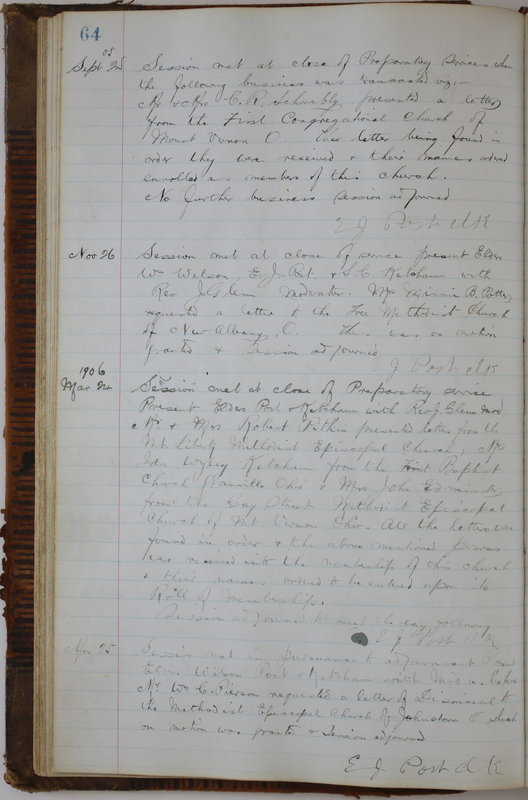 64
05
Sept 2nd Session met at close of Preparatory services when
the following business was transacted viz:-
Mr & Mrs C. R. Schnably presented a letter
from the First Congregational Church of
Mount Vernon O. This letter being found in
order they were received & their names ordered
enrolled as members of this church.
No further business session adjourned
E J Post Clk
Nov 26 Session met at close of service present Elders
Wm Wilson, E. J. Post. & S. C. Ketcham with
Rev J. Glenn Moderator. Mrs Minnie B. Potter
requested a letter to the Free Methodist Church
of New Albany, O. This was on motion
granted & Session adjourned
J Post Clk
1906
Mar Session met at close of Preparatory service
Present Elders Post & Ketcham with Rev J. Glenn Mod
Mr & Mrs Robert presented letters from the
Mt. Liberty Methodist Episcopal Church; Mrs
Ida Wyley Ketcham from the First Baptist
Church Granville Ohio & Mrs John Edminster
from the Gay Street Methodist Episcopal
Church of Mt Vernon Ohio. All the letters were
found in order & the above mentioned persons
were received into the membership of this church
& their names ordered to be entered upon
Roll of Membership.
Session adjourned to meet the day following
E J Post Clk
Apr 25 Session met in pursuance to adjournment Present
Elders Wilson Post & Ketcham with Mod
Mr Wm C. Pierson requested a letter of Dismissal to
the Methodist Episcopal Church of Johnstown O which
on motion was granted & Session adjourned
E J Post Clk